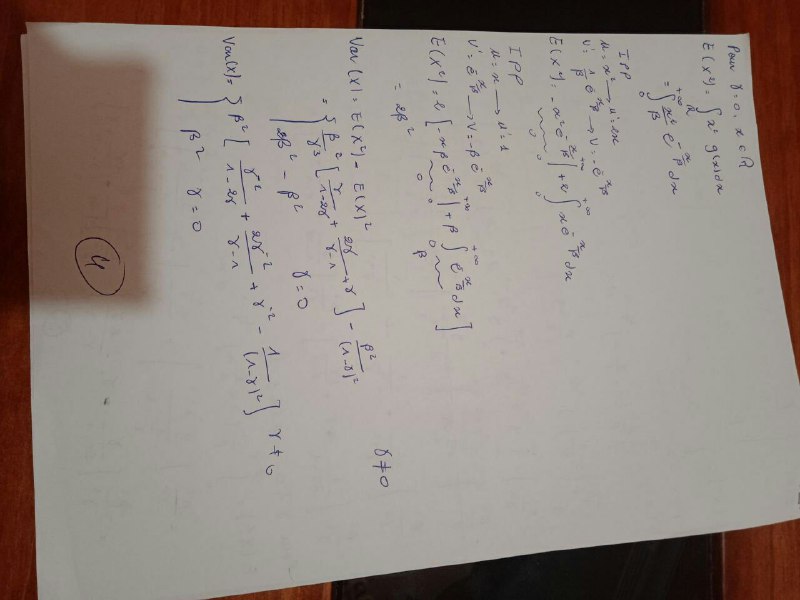 Pour γ = 0, x ∈ ℝ
E(X²) = ∫_ℝ x² g(x) dx
= ∫₀^{+∞} x²/β e^{-x/β} dx
IPP
u = x² → u' = 2x
v' = 1/β e^{-x/β} → v = -e^{-x/β}
E(X²) = -x² e^{-x/β} |₀^{+∞} + 2 ∫₀^{+∞} x e^{-x/β} dx
0
IPP
u = x → u' = 1
v' = e^{-x/β} → v = -β e^{-x/β}
E(X²) = 2 [ -xβ e^{-x/β} |₀^{+∞} + β ∫₀^{+∞} e^{-x/β} dx ]
0 β
= 2β²
Var(X) = E(X²) - E(X)²
= { β²/γ³ [ γ/(1-2γ) + 2γ/(γ-1) + γ ] - β²/(1-γ)² γ ≠ 0
2β² - β² γ = 0
Var(X) = { β² [ γ⁻²/(1-2γ) + 2γ⁻²/(γ-1) + γ⁻² - 1/(1-γ)² ] γ ≠ 0
β² γ = 0
4